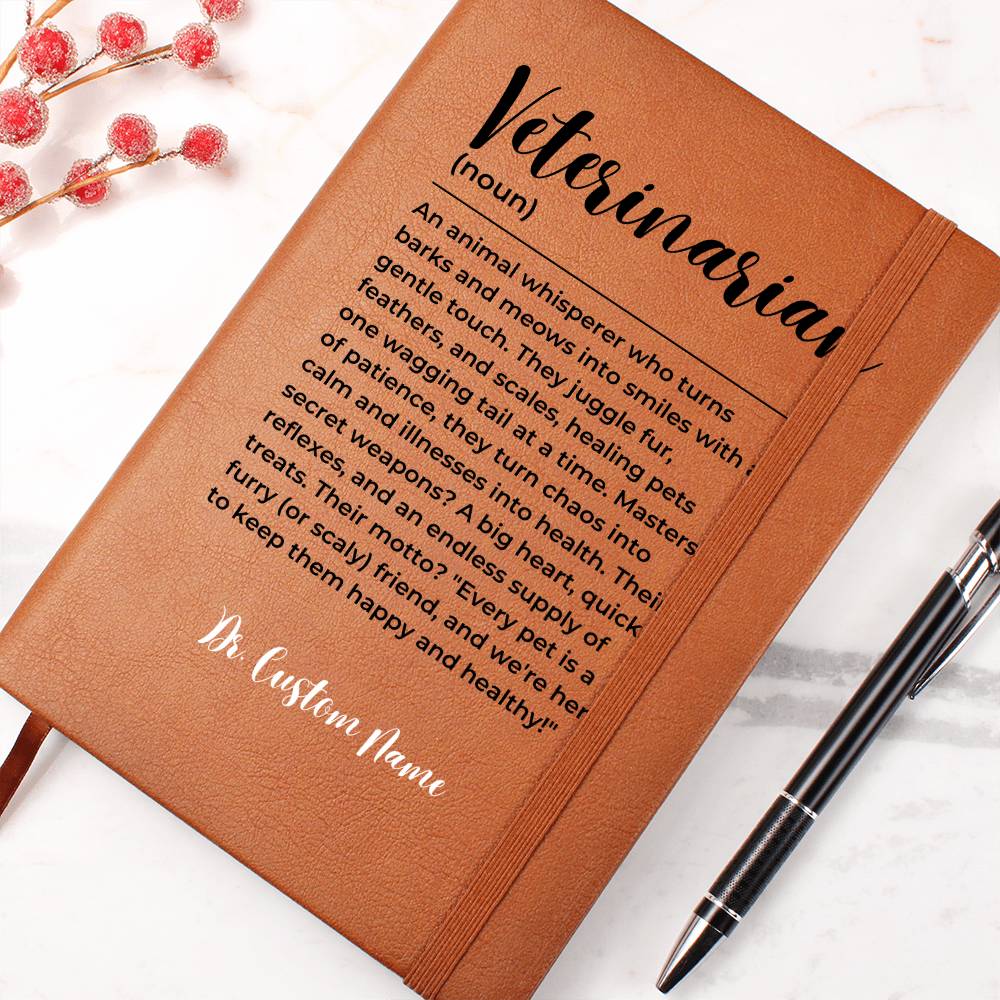 Veterinarian
(noun)
An animal whisperer who turns
barks and meows into smiles with a
gentle touch. They juggle fur,
feathers, and scales, healing pets
one wagging tail at a time. Masters
of patience, they turn chaos into
calm and illnesses into health. Their
secret weapons? A big heart, quick
reflexes, and an endless supply of
treats. Their motto? "Every pet is a
furry (or scaly) friend, and we're her
to keep them happy and healthy!"
Dr. Custom Name